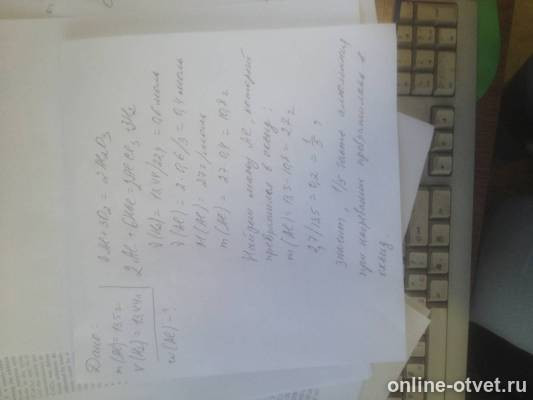 Дано:
m(Al)=13,5 г
V(H2)=13,44 л
w(Al)-?
4Al+3O2=2Al2O3
2Al+6HCl=2AlCl3+3H2
ν(H2)=13,44/22,4=0,6 моль
ν(Al)=2·0,6/3=0,4 моль
M(Al)=27 г/моль
m(Al)=27·0,4=10,8 г
Найдем массу Al, который
превратился в оксид:
m(Al)=13,5-10,8=2,7 г
2,7/13,5=0,2=1/5,
значит, 1/5 часть алюминия
при нагревании превратилась в
оксид.
online-otvet.ru